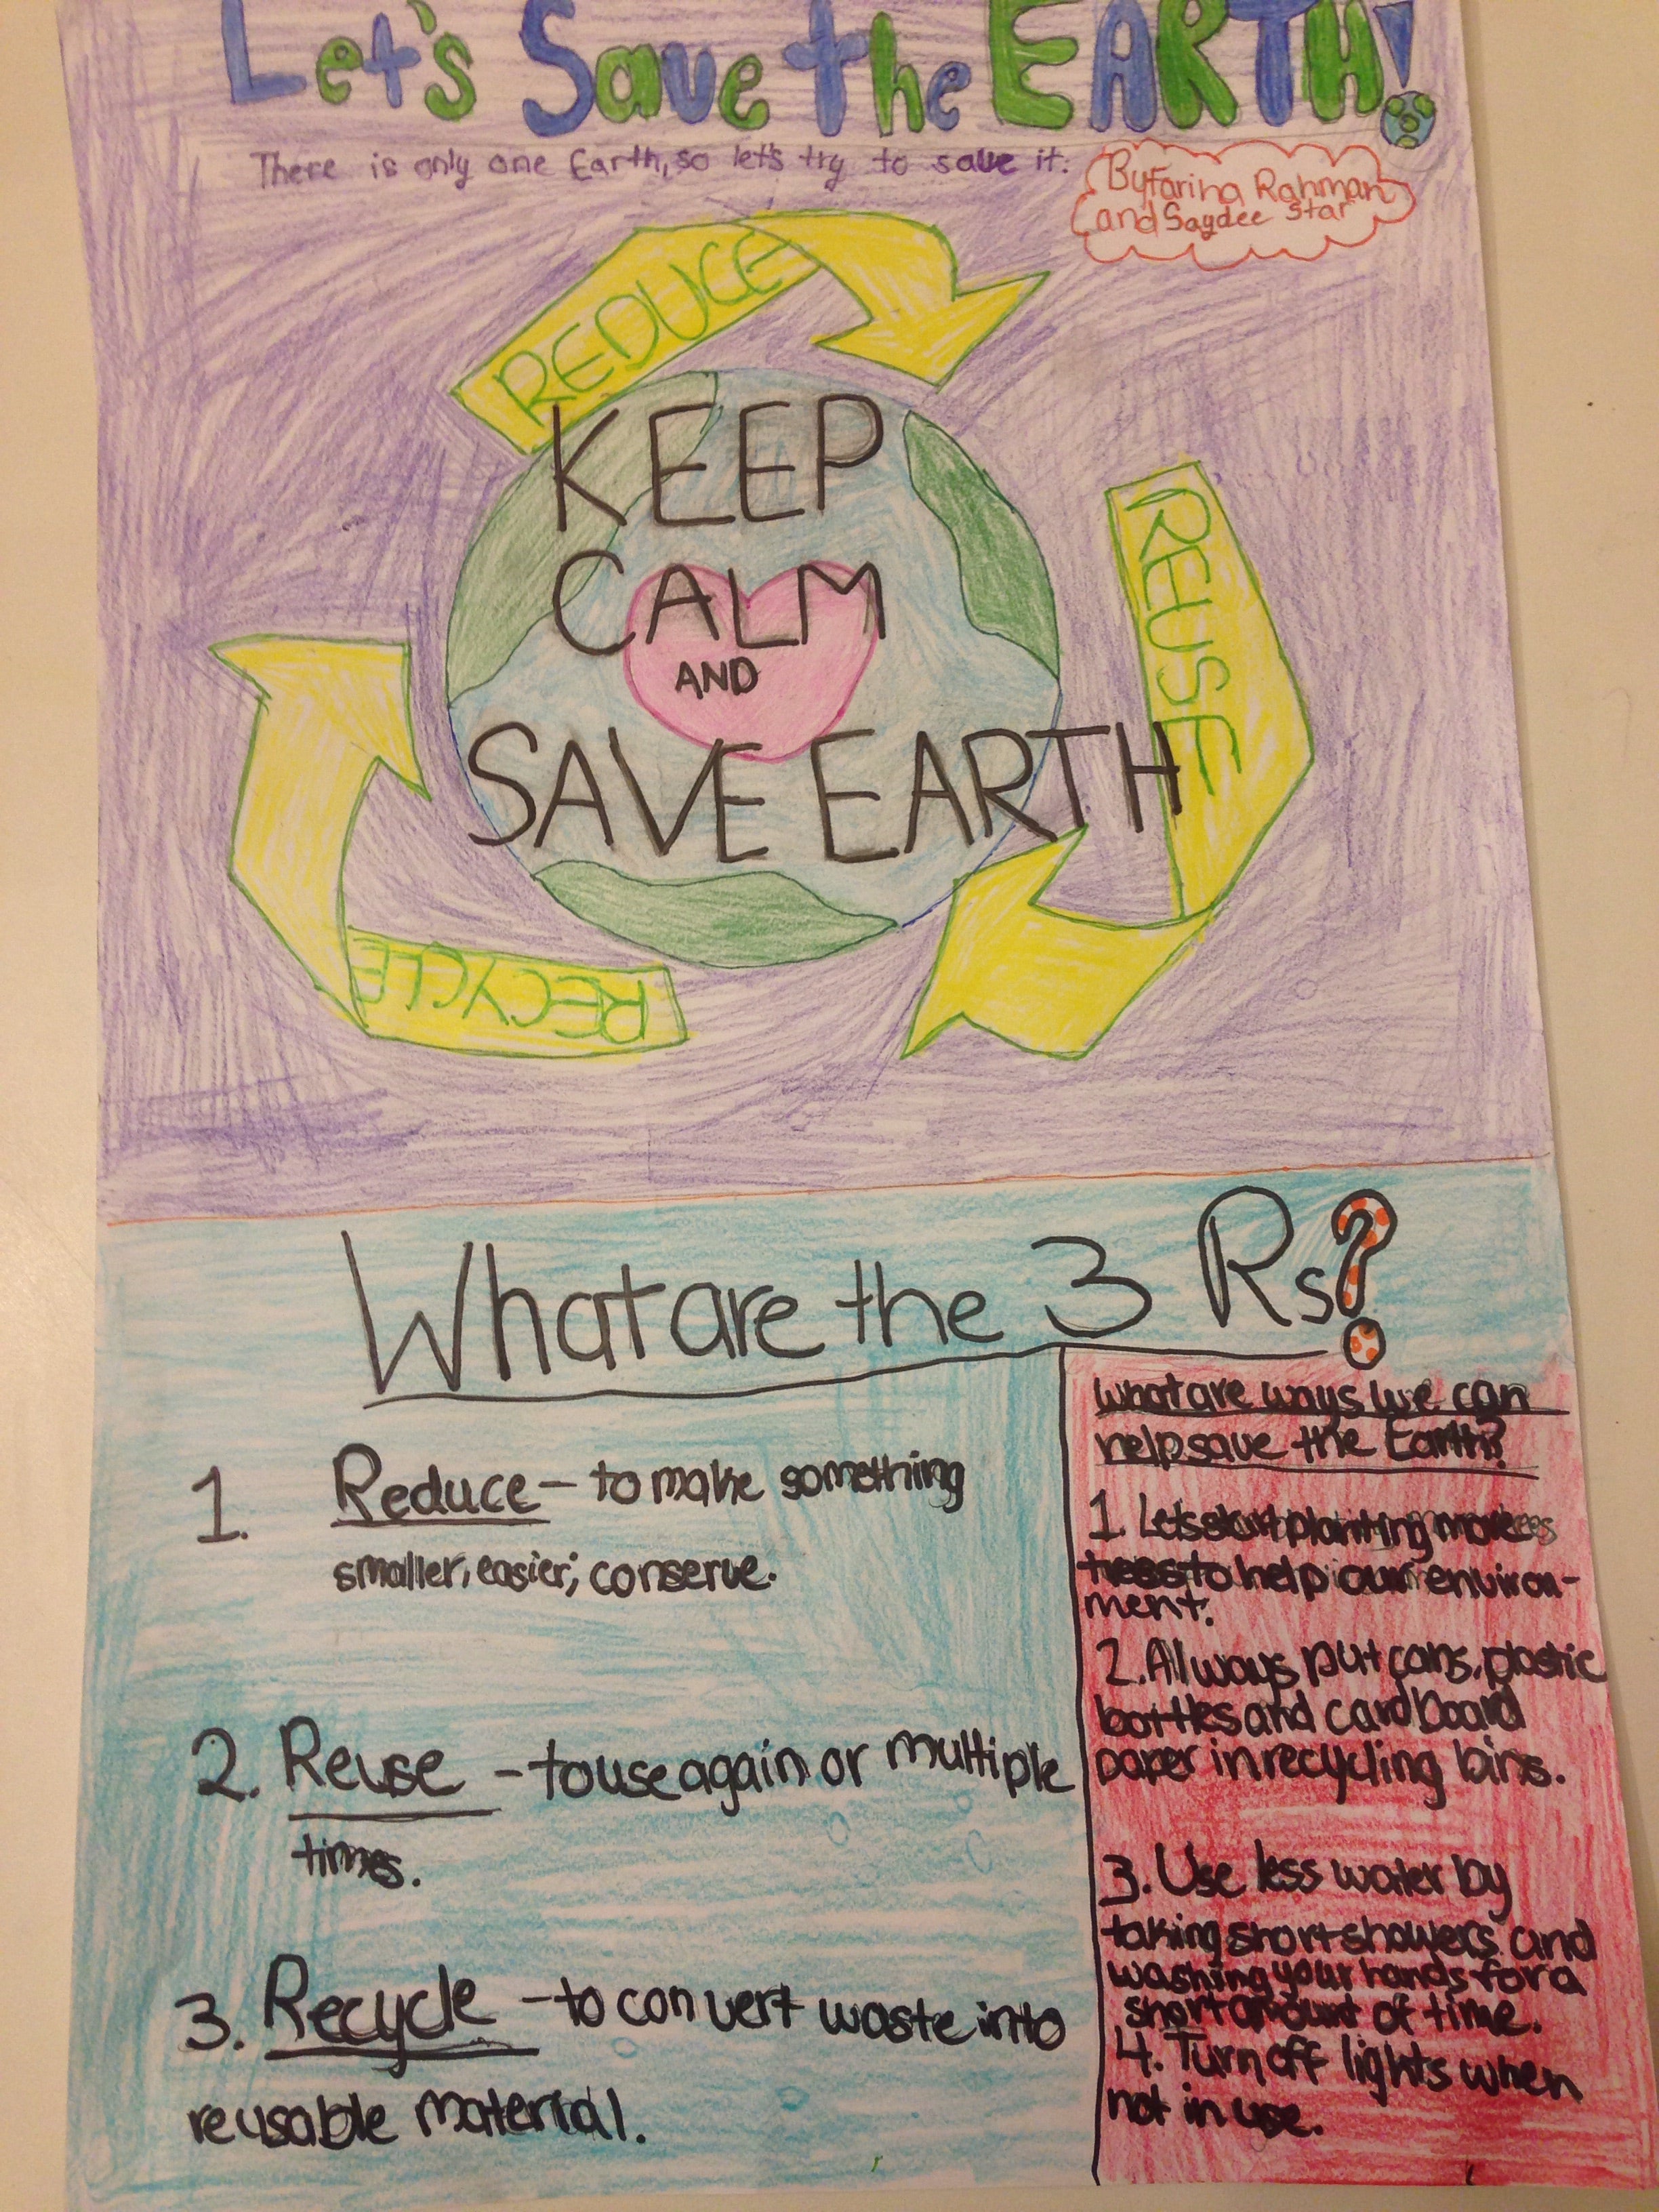 Let's Save the EARTH!
There is only one Earth, so let's try to save it.
By Farina Rahman
and Saydee Star
REDUCE
KEEP
CALM
AND
SAVE EARTH
REUSE
RECYCLE
What are the 3 Rs?
1. Reduce - to make something
smaller, easier; conserve.
2. Reuse - to use again or multiple
times.
3. Recycle - to convert waste into
reusable material.
what are ways we can
help save the Earth?
1. Lets start planting more
trees to help our environ-
ment.
2. Always put cans, plastic
bottles and cardboard
paper in recycling bins.
3. Use less water by
taking short showers and
washing your hands for a
short amount of time.
4. Turn off lights when
not in use.